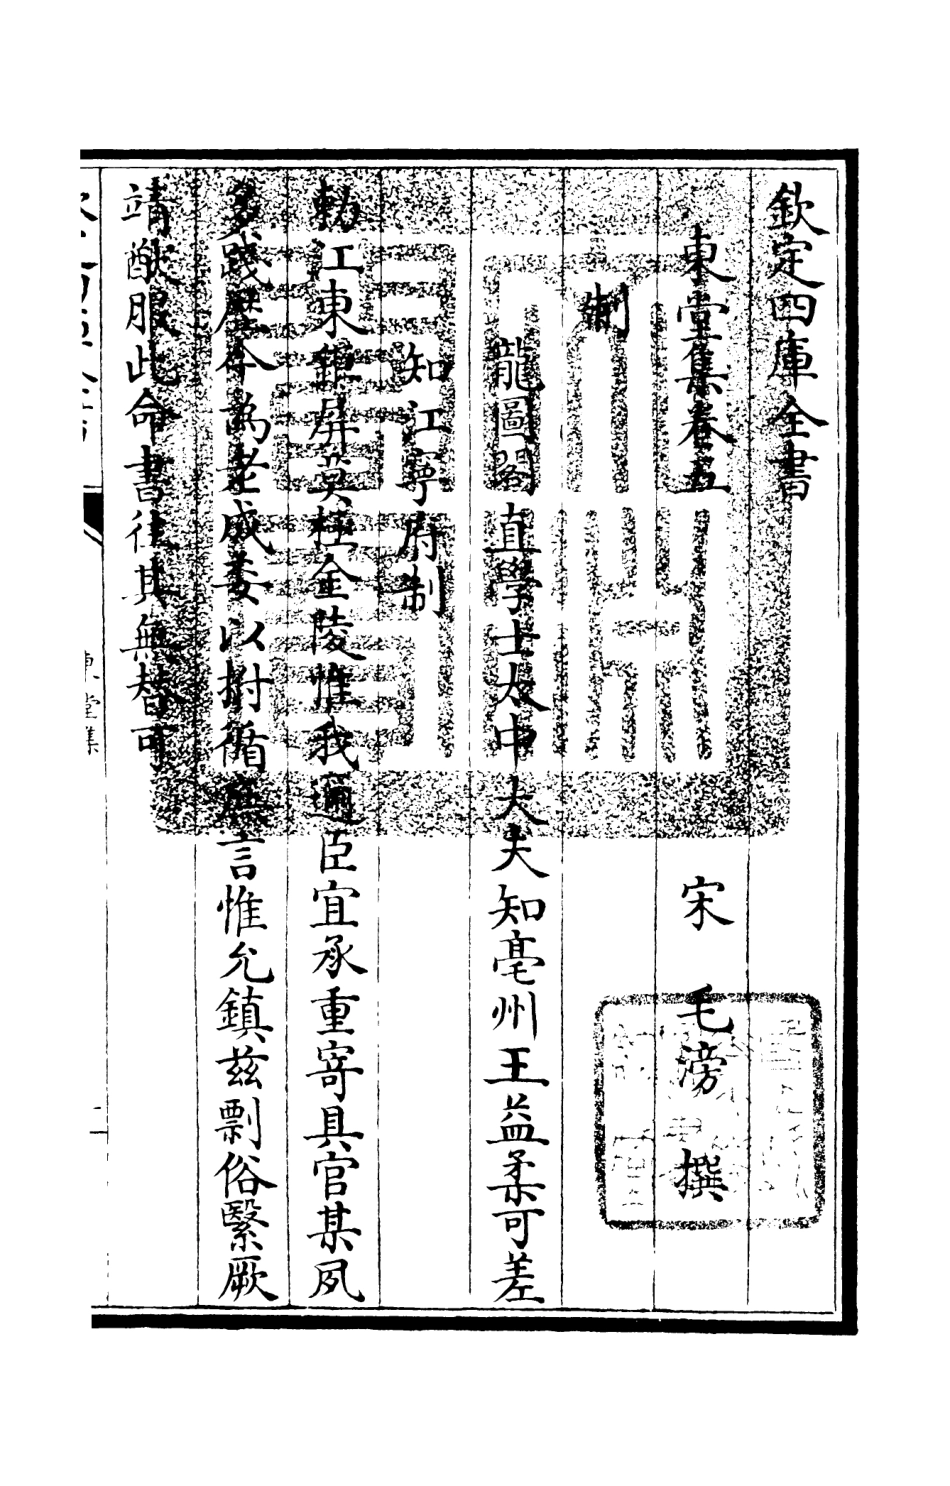 欽定四庫全書
東堂集卷五
宋 毛滂 撰
制
龍圖閣直學士太中大夫知亳州王益柔可差
知江寧府制
勅江東鎮屏英控金陵惟我邇臣宜承重寄具官某夙
多踐歷今為老成委以拊循庶言惟允鎮兹剽俗繄厥
靖猷服此命書往其無替可
東堂集